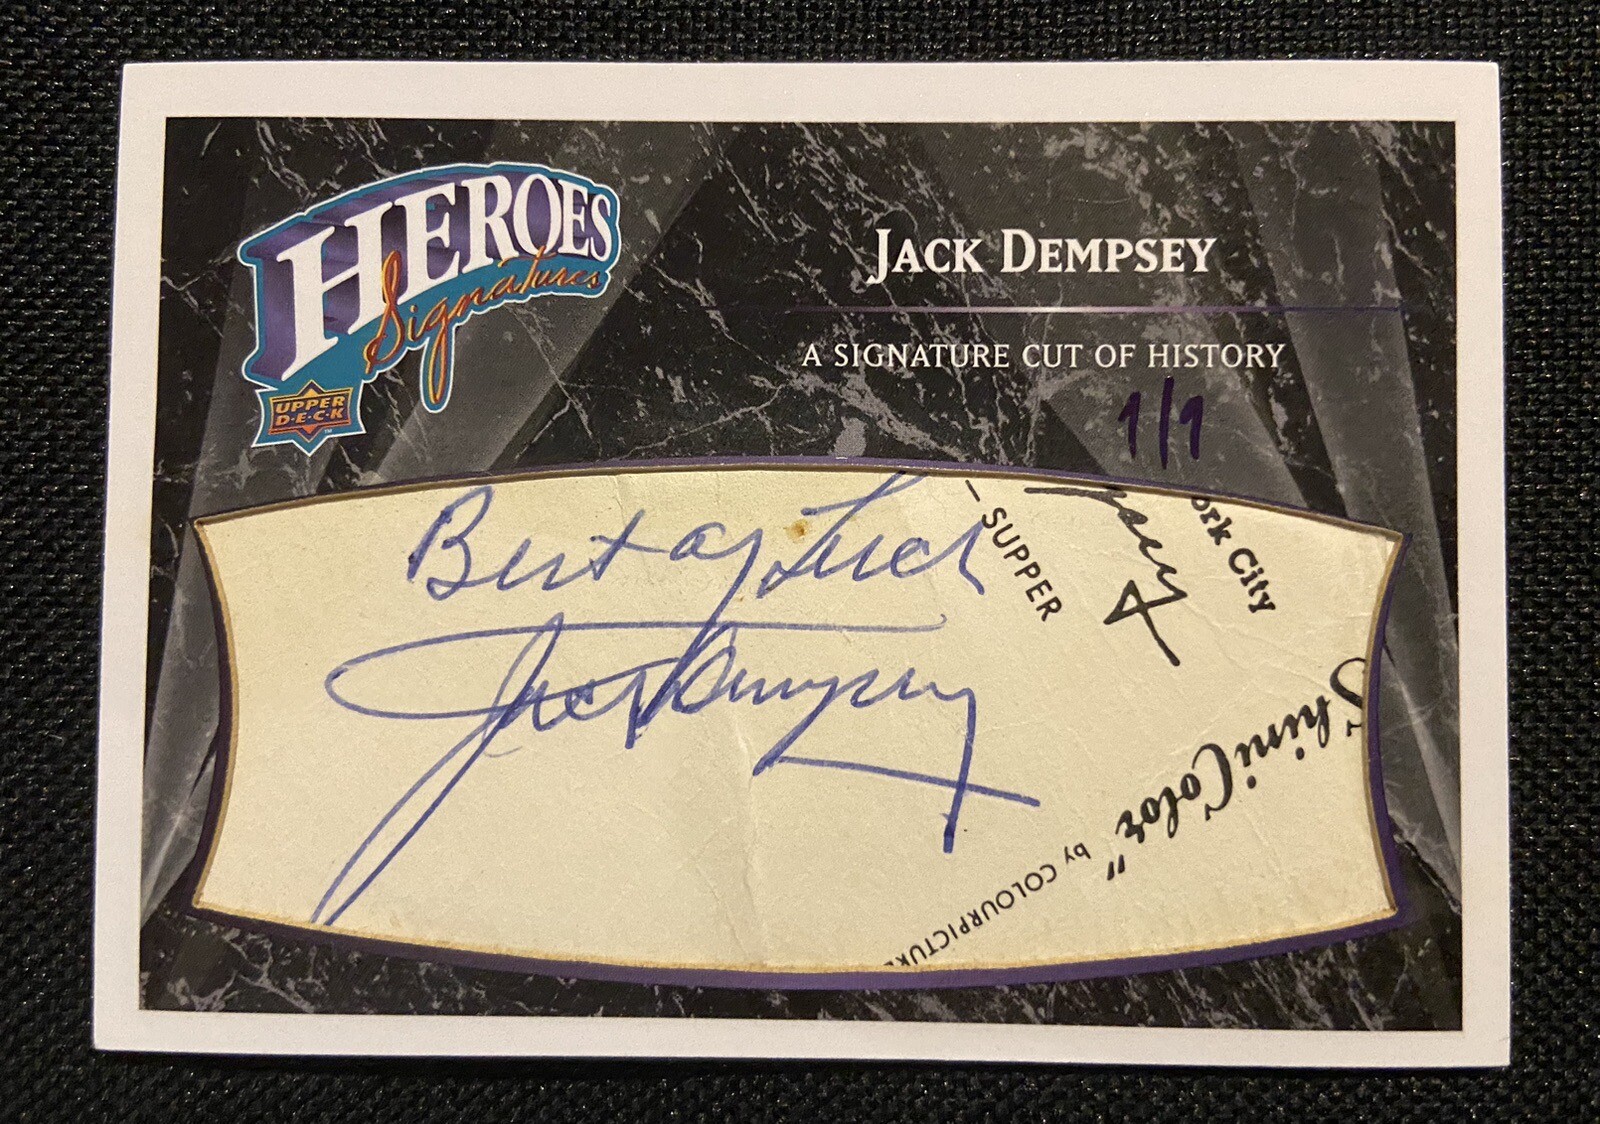 HEROES
Signatures
UPPER
D·E·C·K
TM
JACK DEMPSEY
A SIGNATURE CUT OF HISTORY
1/1
Best of Luck
Jack Dempsey
- SUPPER
ork City
"ShiniColor" by COLOURPICTURE